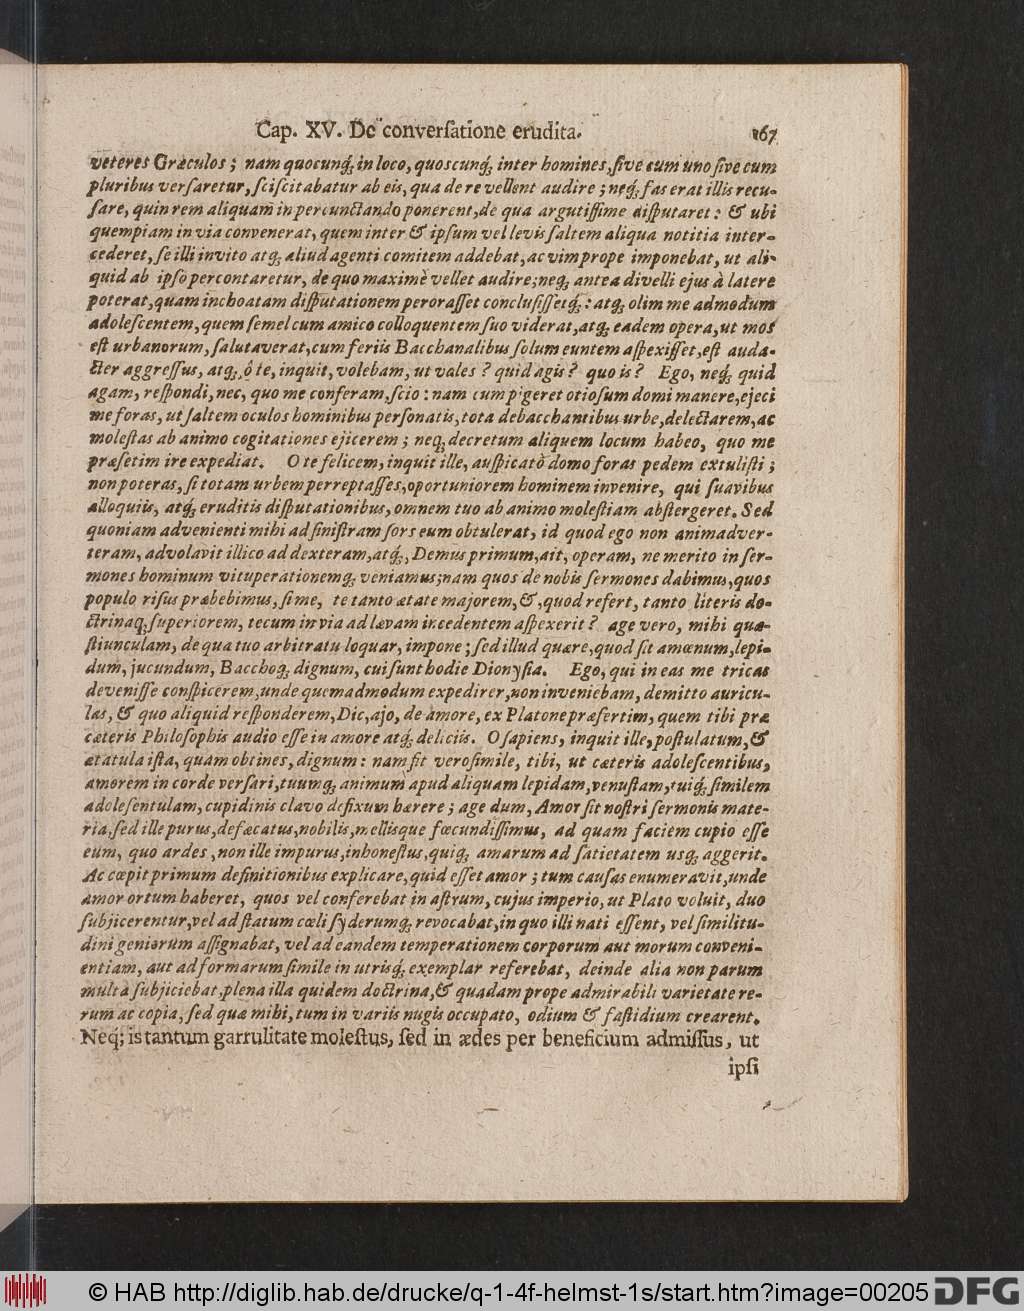 Cap. XV. De converſatione erudita. 167
veteres Græculos; nam quocunq́; in loco, quoscunq́; inter homines, ſive cum uno ſive cum
pluribus verſaretur, ſciſcitabatur ab eis, qua de re vellent audire; neq́; fas erat illis recu-
ſare, quin rem aliquam in percunctando ponerent, de qua argutiſſime diſputaret: & ubi
quempiam in via convenerat, quem inter & ipſum vel levis ſaltem aliqua notitia inter-
cederet, ſe illi invito atq; aliud agenti comitem addebat, ac vim prope imponebat, ut ali-
quid ab ipſo percontaretur, de quo maximè vellet audire; neq; antea divelli ejus à latere
poterat, quam inchoatam diſputationem peroraſſet concluſiſſetq́;: atq; olim me admodum
adoleſcentem, quem ſemel cum amico colloquentem ſuo viderat, atq; eadem opera, ut mos
eſt urbanorum, ſalutaverat, cum feriis Bacchanalibus ſolum euntem aſpexiſſet, eſt auda-
cter aggreſſus, atq;, ô te, inquit, volebam, ut vales? quid agis? quo is? Ego, neq́; quid
agam, reſpondi, nec, quo me conferam, ſcio: nam cum pigeret otioſum domi manere, ejeci
me foras, ut ſaltem oculos hominibus perſonatis, tota debacchantibus urbe, delectarem, ac
moleſtas ab animo cogitationes ejicerem; neq; decretum aliquem locum habeo, quo me
præſetim ire expediat. O te felicem, inquit ille, auſpicatò domo foras pedem extuliſti;
non poteras, ſi totam urbem perreptaſſes, oportuniorem hominem invenire, qui ſuavibus
alloquiis, atq́; eruditis diſputationibus, omnem tuo ab animo moleſtiam abſtergeret. Sed
quoniam advenienti mihi ad ſiniſtram ſors eum obtulerat, id quod ego non animadver-
teram, advolavit illico ad dexteram, atq́;, Demus primum, ait, operam, ne merito in ſer-
mones hominum vituperationemq; veniamus; nam quos de nobis ſermones dabimus, quos
populo riſus præbebimus, ſi me, te tanto ætate majorem, &, quod refert, tanto literis do-
ctrinaq; ſuperiorem, tecum in via ad lævam incedentem aſpexerit? age vero, mihi quæ-
ſtiunculam, de qua tuo arbitratu loquar, impone; ſed illud quære, quod ſit amœnum, lepi-
dum, jucundum, Bacchoq; dignum, cui ſunt hodie Dionyſia. Ego, qui in eas me tricas
deveniſſe conſpicerem, unde quemadmodum expedirer, non inveniebam, demitto auricu-
las, & quo aliquid reſponderem, Dic, ajo, de amore, ex Platone præſertim, quem tibi præ
cæteris Philoſophis audio eſſe in amore atq́; deliciis. O ſapiens, inquit ille, poſtulatum, &
ætatula iſta, quam obtines, dignum: nam fit veroſimile, tibi, ut cæteris adoleſcentibus,
amorem in corde verſari, tuumq; animum apud aliquam lepidam, venuſtam, tuiq́; ſimilem
adoleſentulam, cupidinis clavo defixum hærere; age dum, Amor ſit noſtri ſermonis mate-
ria, ſed ille purus, defæcatus, nobilis, mellisque fœcundiſſimus, ad quam faciem cupio eſſe
eum, quo ardes, non ille impurus, inhoneſtus, quiq; amarum ad ſatietatem usq; aggerit.
Ac cœpit primum definitionibus explicare, quid eſſet amor; tum cauſas enumeravit, unde
amor ortum haberet, quos vel conferebat in aſtrum, cujus imperio, ut Plato voluit, duo
ſubjicerentur, vel ad ſtatum cœli ſyderumq́; revocabat, in quo illi nati eſſent, vel ſimilitu-
dini geniorum aſſignabat, vel ad eandem temperationem corporum aut morum conveni-
entiam, aut ad formarum ſimile in utrisq́; exemplar referebat, deinde alia non parum
multà ſubjiciebat, plena illa quidem doctrina, & quadam prope admirabili varietate re-
rum ac copia, ſed quæ mihi, tum in variis nugis occupato, odium & faſtidium crearent.
Neq́; is tantum garrulitate moleſtus, ſed in ædes per beneficium admiſſus, ut
ipſi
© HAB http://diglib.hab.de/drucke/q-1-4f-helmst-1s/start.htm?image=00205 DFG